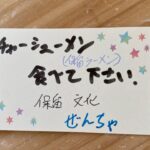 チャーシューメン
(保留ラーメン)
食べて下さい!
保留 文化
ぜんちゃ